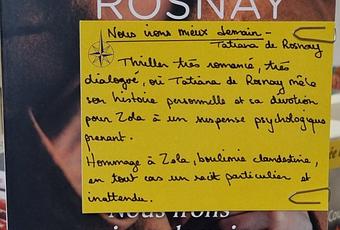 ROSNAY
Nous irons mieux demain -
Tatiana de Rosnay
Thriller très romancé, très
dialogué, où Tatiana de Rosnay mêle
son histoire personnelle et sa dévotion
pour Zola à un suspense psychologique
prenant.
Hommage à Zola, boulimie clandestine,
en tout cas un récit particulier et
inattendu.
Nous irons